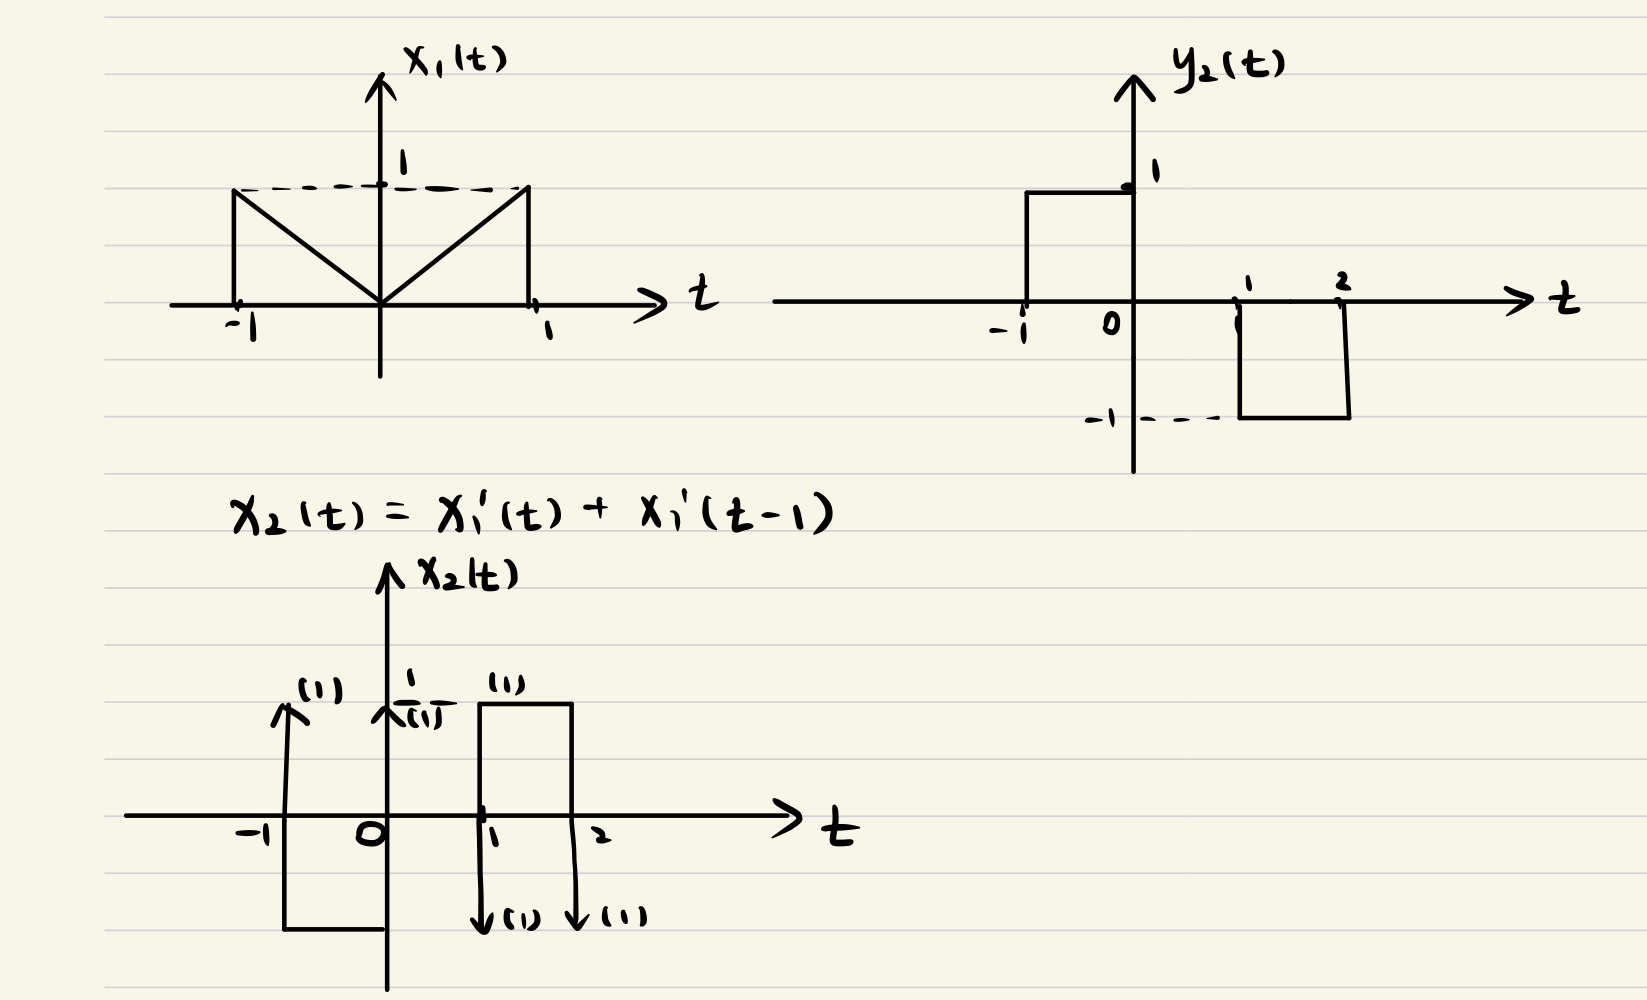 x₁(t)
1
-1 1 t
y₂(t)
1
1 2 t
-1 0
-1
x₂(t) = x₁'(t) + x₁'(t-1)
x₂(t)
(1) 1 (1)
(1)
-1 0 1 2 t
(1) (1)